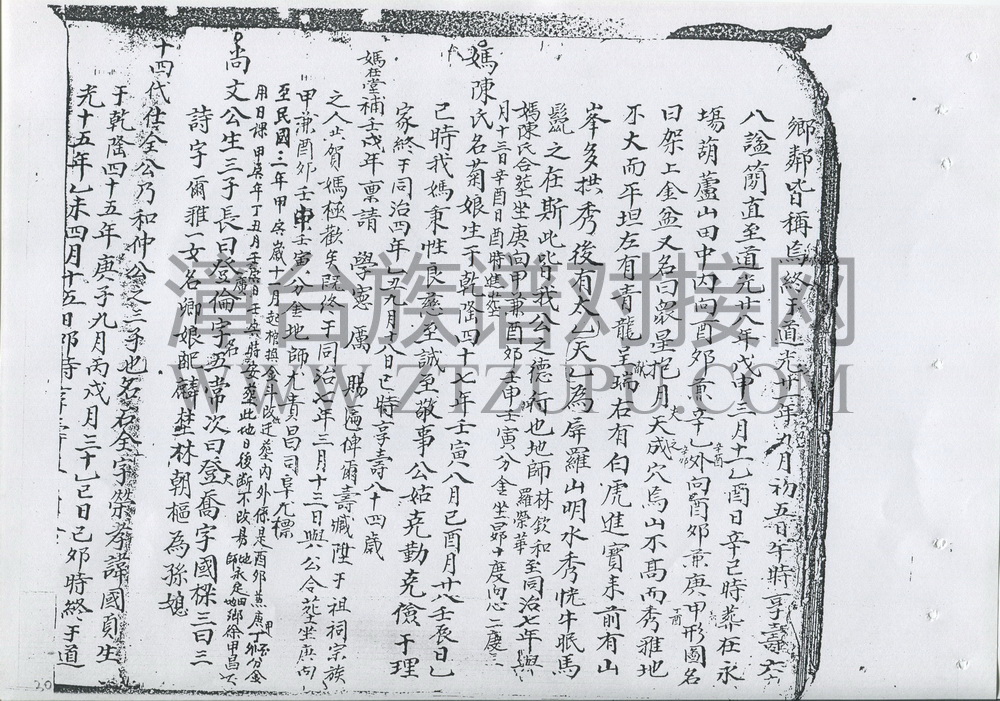 鄉鄰皆稱焉終于道光廿一年九月初五日午時享壽六
八諡簡直至道光廿八年戊申三月十一乙酉日辛巳時葬在永
場葫蘆山田中內向酉夘兼辛乙外向酉夘兼庚甲形圖名
曰架上金盆又名曰眾星抱月天成穴焉山不高而秀雅地
不大而平坦左有青龍呈瑞右有白虎進寶來前有山
峯多拱秀後有太乙天們為屏羅山明水秀恍牛眠馬
鬛之在斯此皆我公之德行也地師林欽和羅榮華至同治七年與
媽陳氏合塟坐庚向甲兼酉夘壬申壬寅分金坐昴十度向心二度三
月十三辛酉日酉時進塟
媽陳氏名菊娘生于乾隆四十七年壬寅八月己酉月廿八壬辰日乙
己時我媽秉性良慈至誠至敬事公姑克勤克儉于理
家終于同治四年乙丑九月八日巳時享壽八十四歲
媽在堂補壬戌年稟請 學憲厲 賜匾俾爾壽臧陞于祖祠宗族
之人止賀媽極歡年既終于同治七年三月十三日與公合塟坐庚向
甲兼酉夘壬申壬寅分金地師尤責昌司阜尤標
至民國三年甲寅歲十月起棺與今年改迁塟內外係是酉夘兼庚甲丁酉丁夘分金
用日課甲寅年丁丑月壬寅日壬寅時安塟此地日後斷不改易地師永定田地鄉徐甲昌
尚文公生三子長曰登倫字五常次曰登喬字國樑三曰三
詩字爾雅一女名卿娘配麟塟林朝樞為孫媳
十四代仕全公乃和仲公之三子也名石全字榮孝諱國貞生
于乾隆四十五年庚子九月丙戌月三十乙巳日己夘時終于道
光十五年乙未四月十五日夘時
20
清台族谱对接网
WWW.ZTZUPU.COM